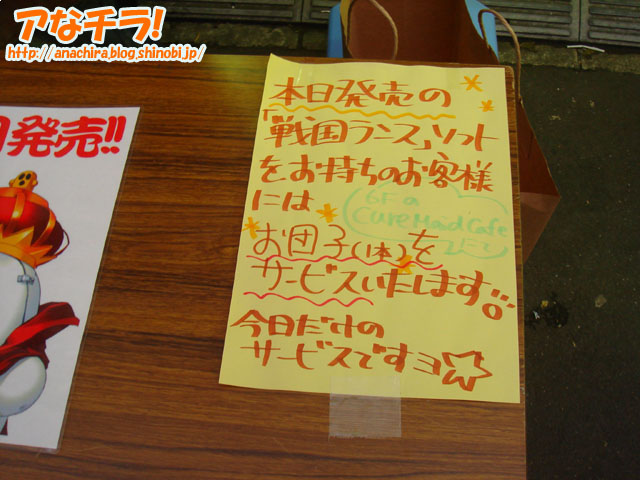 アなチラ!
http://anachira.blog.shinobi.jp/
発売!!
本日発売の
「戦国ランス」ソフト
をお持ちのお客様
には
6Fの
CureMaidCafe
にて
お団子(1本)を
サービスいたします。
今日だけの
サービスですヨ☆